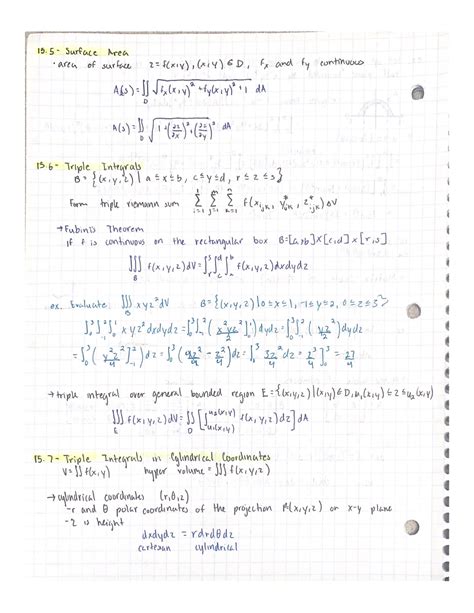 15.5 - Surface Area
· area of surface z = f(x,y), (x,y) ∈ D, fx and fy continuous
A(s) = ∬_D √(fx(x,y)² + fy(x,y)² + 1) dA
A(s) = ∬_D √(1 + (∂z/∂x)² + (∂z/∂y)²) dA
15.6 - Triple Integrals
B = {(x,y,z) | a ≤ x ≤ b, c ≤ y ≤ d, r ≤ z ≤ s}
Form triple riemann sum Σ_{i=1}^{l} Σ_{j=1}^{m} Σ_{k=1}^{n} f(x*_{ijk}, y*_{ijk}, z*_{ijk}) ΔV
→ Fubini's Theorem
if f is continuous on the rectangular box B=[a,b]×[c,d]×[r,s]
∭_B f(x,y,z)dV = ∫_r^s ∫_c^d ∫_a^b f(x,y,z)dxdydz
ex. Evaluate ∭_B xyz² dV B = {(x,y,z) | 0≤x≤1, -1≤y≤2, 0≤z≤3}
∫_0^3 ∫_{-1}^2 ∫_0^1 xyz² dxdydz = ∫_0^3 ∫_{-1}^2 (x²yz²/2 ]_0^1) dydz = ∫_0^3 ∫_{-1}^2 (yz²/2) dydz
= ∫_0^3 (y²z²/4 ]_{-1}^2) dz = ∫_0^3 (4z²/4 - z²/4) dz = ∫_0^3 3z²/4 dz = z³/4 ]_0^3 = 27/4
→ triple integral over general bounded region E = {(x,y,z) | (x,y) ∈ D, u₁(x,y) ≤ z ≤ u₂(x,y)
∭_E f(x,y,z) dV = ∬_D [∫_{u₁(x,y)}^{u₂(x,y)} f(x,y,z) dz] dA
15.7 - Triple Integrals in Cylindrical Coordinates
V = ∬ f(x,y) hyper volume = ∭ f(x,y,z)
→ cylindrical coordinates (r,θ,z)
- r and θ polar coordinates of the projection P(x,y,z) on x-y plane
- z is height
dxdydz = rdrdθdz
cartesian cylindrical